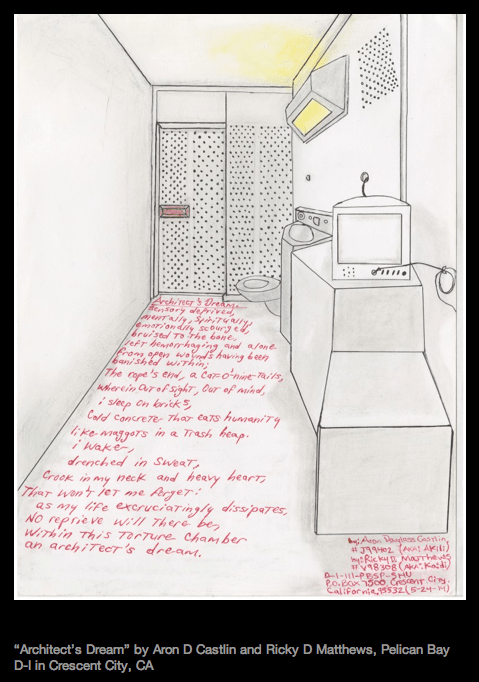 Architect's Dream
Sensory deprived,
mentally, Spiritually,
emotionally scourged,
bruised to the bone,
left hemorrhaging and alone
from open wounds having been
banished within;
The rope's end, a Cat-O'-nine-Tails,
wherein Out of Sight, Out of mind,
i sleep on bricks,
Cold concrete that eats humanity
like maggots in a Trash heap.
i waker,
drenched in sweat,
Crook in my neck and heavy heart,
That won't let me forget:
as my life excruciatingly dissipates,
NO reprieve will There be,
Within This Torture Chamber
an architect's dream.
by: Aron Douglass Castlin,
# J99402 (AKA: AKili)
by: Ricky D. Matthews
# V98308 (AKA: Kaidi)
D-1-111-PBSP-SHU
P.O. Box 7500, Crescent City,
California, 95532 (5-24-14)
“Architect’s Dream” by Aron D Castlin and Ricky D Matthews, Pelican Bay
D-I in Crescent City, CA